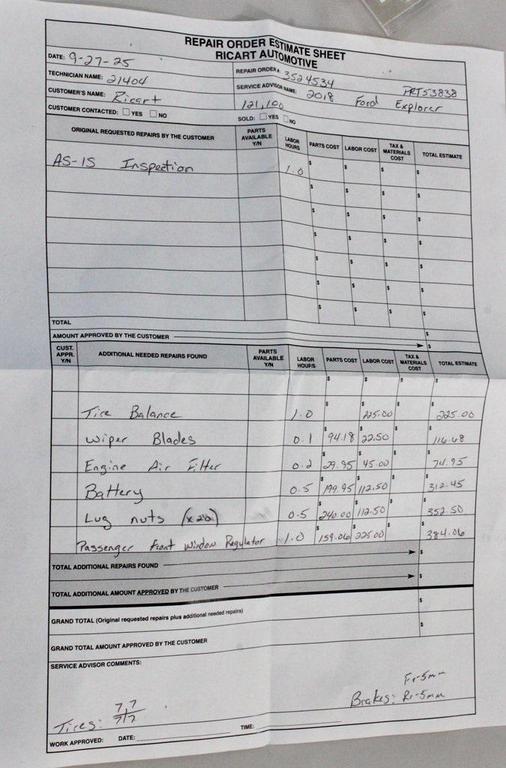 REPAIR ORDER ESTIMATE SHEET
RICART AUTOMOTIVE
DATE: 9-27-25
REPAIR ORDER#: 3524534 PRT53838
TECHNICIAN NAME: 21404
SERVICE ADVISOR NAME: 2018 Ford Explorer
CUSTOMER'S NAME: Ricart 121,100
CUSTOMER CONTACTED: ☐ YES ☐ NO SOLD: ☐ YES ☐ NO
ORIGINAL REQUESTED REPAIRS BY THE CUSTOMER PARTS AVAILABLE Y/N LABOR HOURS PARTS COST LABOR COST TAX & MATERIALS COST TOTAL ESTIMATE
AS-IS Inspection 1.0 $ $ $ $
$ $ $ $
$ $ $ $
$ $ $ $
$ $ $ $
$ $ $ $
$ $ $ $
TOTAL $
AMOUNT APPROVED BY THE CUSTOMER $
CUST. APPR. Y/N ADDITIONAL NEEDED REPAIRS FOUND PARTS AVAILABLE Y/N LABOR HOURS PARTS COST LABOR COST TAX & MATERIALS COST TOTAL ESTIMATE
$ $ $ $
Tire Balance 1.0 $ $ 225.00 $ $ 225.00
Wiper Blades 0.1 $ 94.18 $ 22.50 $ $ 116.68
Engine Air Filter 0.2 $ 29.95 $ 45.00 $ $ 74.95
Battery 0.5 $ 199.95 $ 112.50 $ $ 312.45
Lug nuts (x20) 0.5 $ 240.00 $ 112.50 $ $ 352.50
Passenger Front Window Regulator 1.0 $ 159.06 $ 225.00 $ $ 384.06
TOTAL ADDITIONAL REPAIRS FOUND $
TOTAL ADDITIONAL AMOUNT APPROVED BY THE CUSTOMER $
GRAND TOTAL (Original requested repairs plus additional needed repairs) $
GRAND TOTAL AMOUNT APPROVED BY THE CUSTOMER $
SERVICE ADVISOR COMMENTS:
Fr-5mm
Brakes: Rr-5mm
Tires: 7,7
7,7
WORK APPROVED: DATE: TIME: